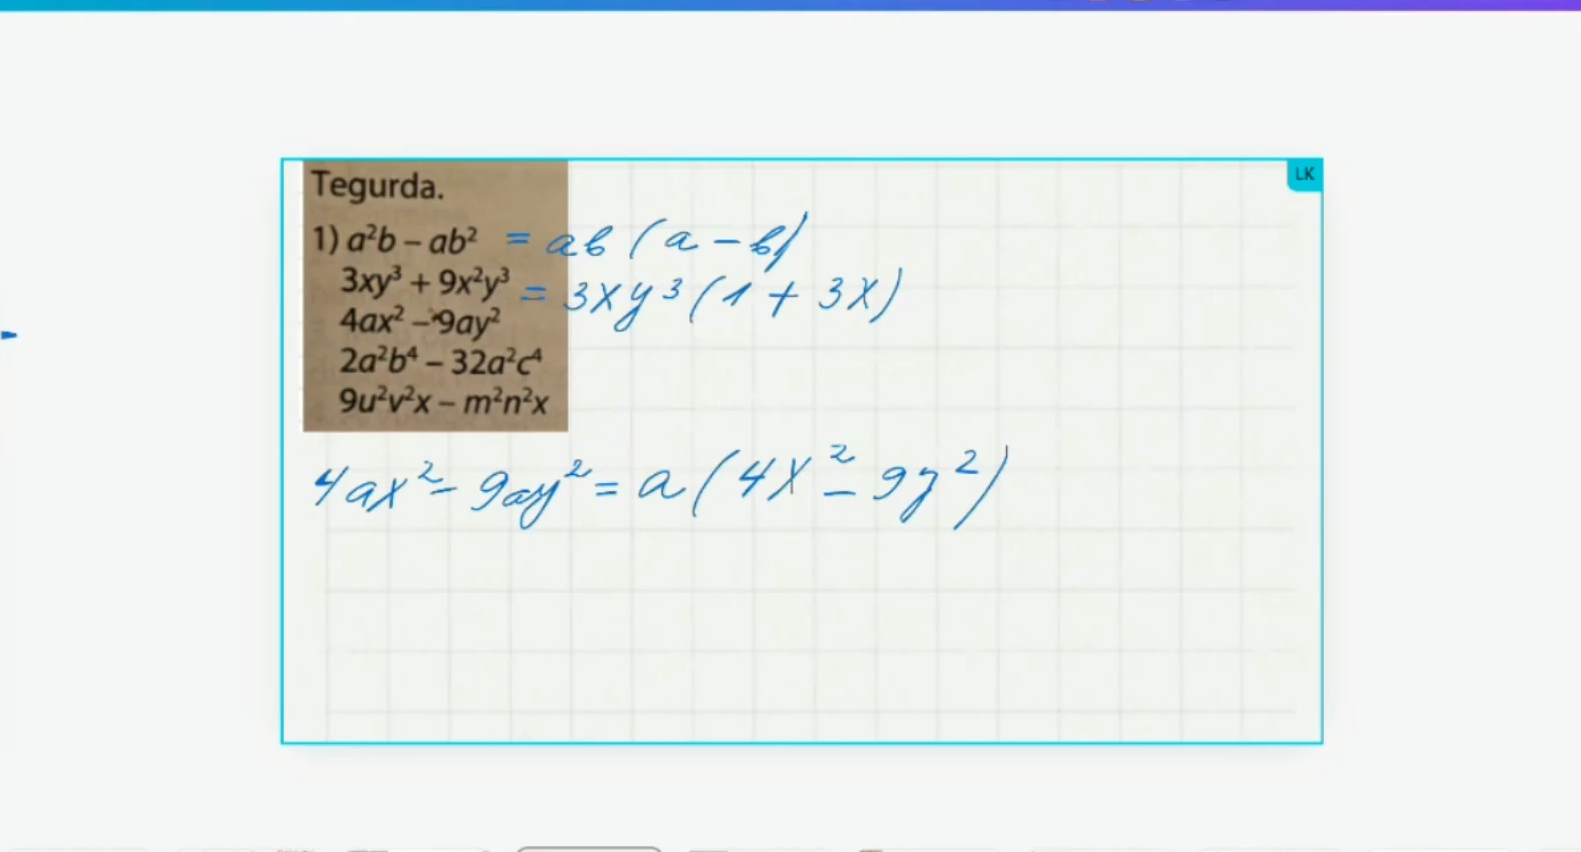 LK
Tegurda.
1) a²b – ab² = ab (a – b)
3xy³ + 9x²y³ = 3xy³ (1 + 3x)
4ax² – 9ay²
2a²b⁴ – 32a²c⁴
9u²v²x – m²n²x
4ax² – 9ay² = a (4x² – 9y²)